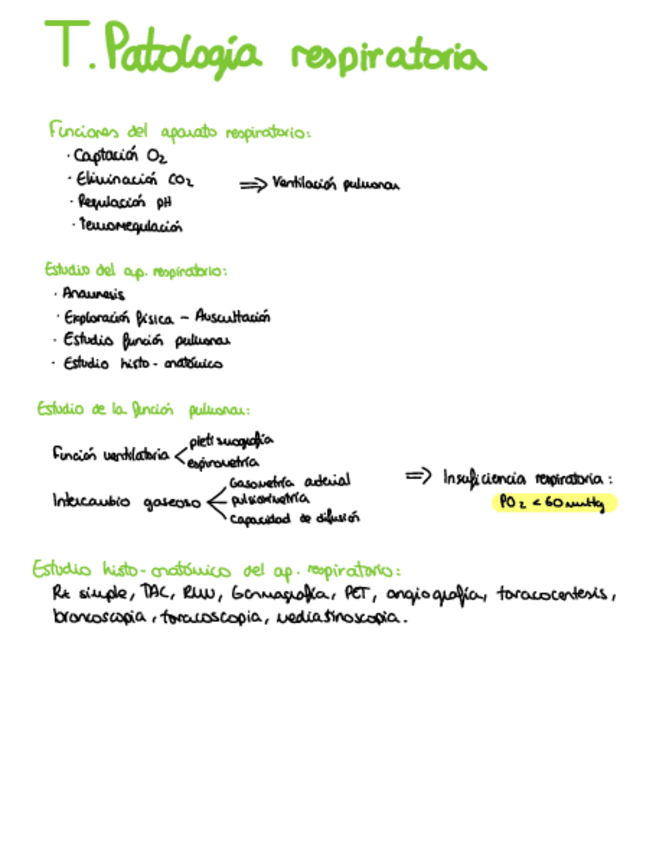 T. Patología respiratoria
Funciones del aparato respiratorio:
· Captación O₂
· Eliminación CO₂ ⇒ Ventilación pulmonar
· Regulación pH
· Termorregulación
Estudio del ap. respiratorio:
· Anamnesis
· Exploración física - Auscultación
· Estudio función pulmonar
· Estudio histo-anatómico
Estudio de la función pulmonar:
Función ventilatoria < pletismografía
espirometría
Intercambio gaseoso < Gasometría arterial
pulsioximetría
Capacidad de difusión
⇒ Insuficiencia respiratoria:
PO₂ < 60 mmHg
Estudio histo-anatómico del ap. respiratorio:
Rx simple, TAC, RMN, Gammagrafía, PET, angiografía, toracocentesis,
broncoscopia, toracoscopia, mediastinoscopia.